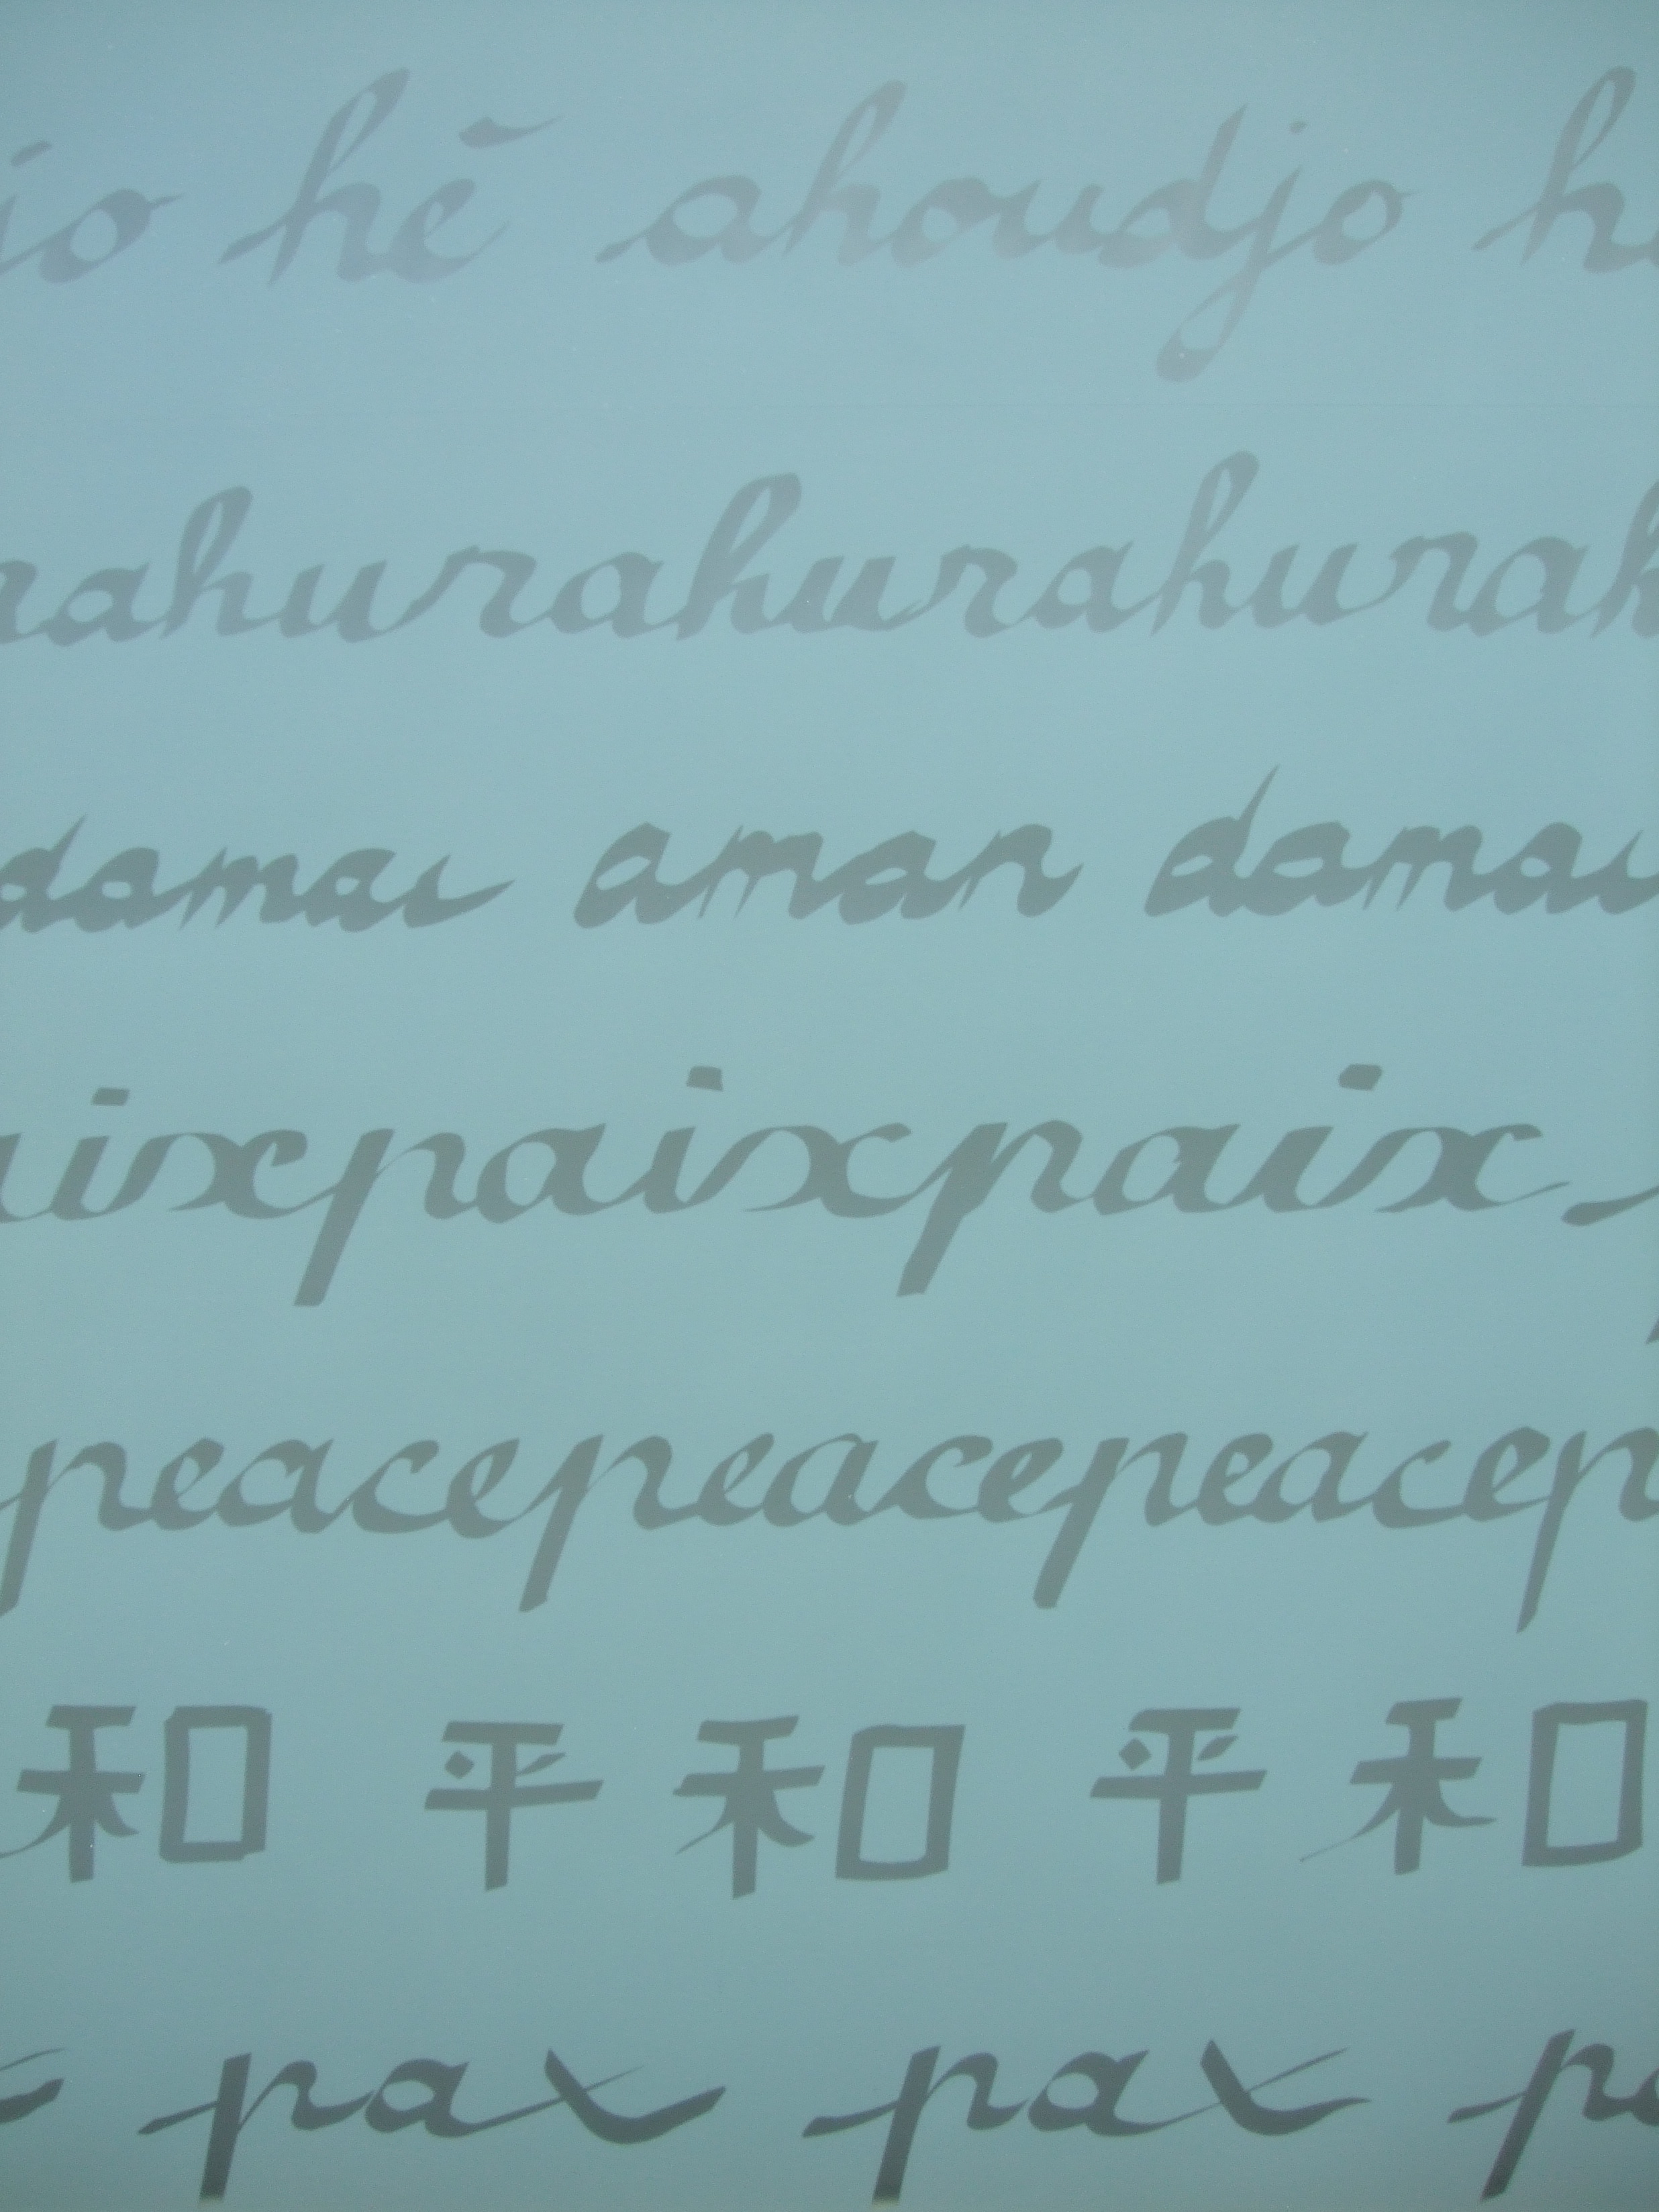 jo hē ahoudjo h
rahurahurahurah
damai aman damai
aixpaixpaix
peacepeacepeacep
和 平和 平和
pax pax pa